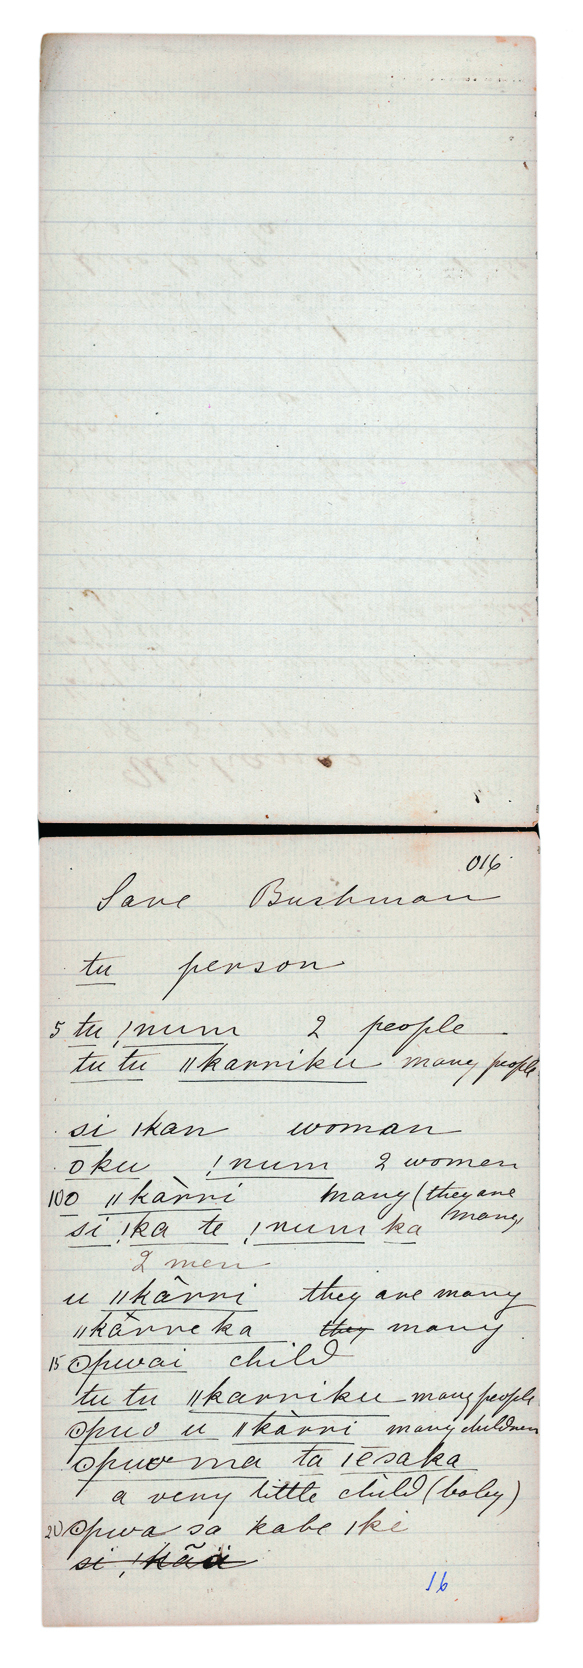 016
Save Bushman
tu person
5 tu !num 2 people
tu tu ǁkarriku many people
si ǀkan woman
oku !num 2 women
10 o ǁkàrri many (they are many)
si !ka te !num ka
2 men
u ǁkàrri they are many
ǁkàrreka they many
15 ʘpwai child
tu tu ǁkarriku many people
ʘpuo u ǁkàrri many children
ʘpuoma ta ǀesaka
a very little child (baby)
20 ʘpwa sa kabe ǀke
si !kãä
16